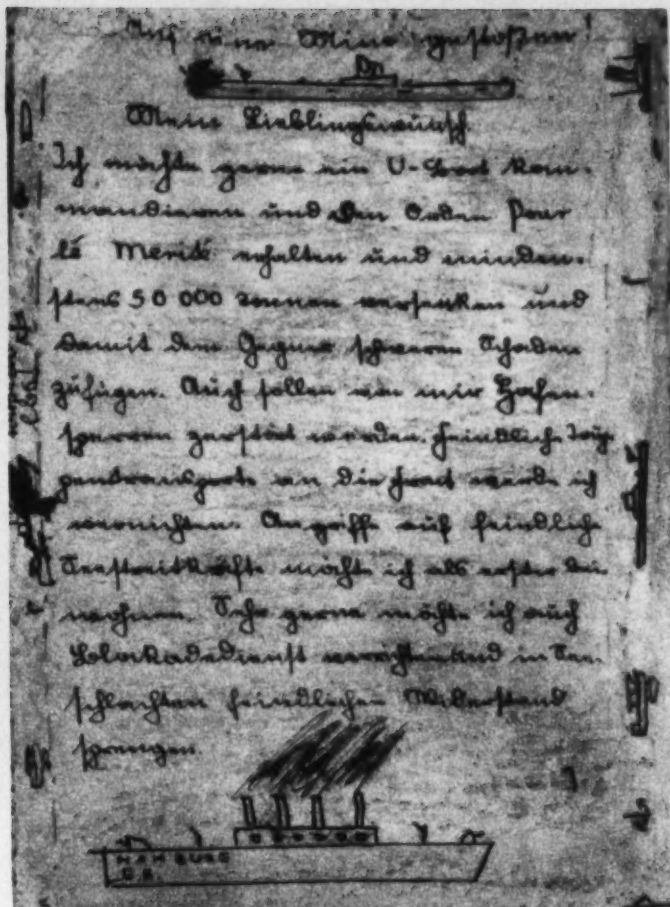 Auf eine Mine gestoßen!
Mein Lieblingswunsch
Ich möchte gerne ein U-Boot kom-
mandieren und den Orden Pour
lé Merité erhalten und minden-
stens 50 000 Tonnen versenken und
damit dem Gegner schweren Schaden
zufügen. Auch sollen von mir Hafen-
sperren zerstört werden. Feindliche Trup-
pentransporte an die Front werde ich
vernichten. Angriffe auf feindliche
Seestreitkräfte möchte ich als erster bei-
wohnen. Sehr gerne möchte ich auch
Blockadedienst verrichten und in See-
schlachten feindlichen Widerstand
sprengen.
HAMBURG